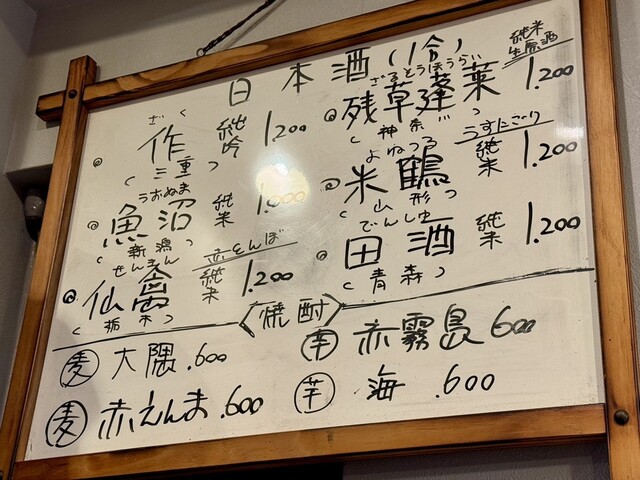 日本酒(1合)
ざく
作 純吟 1.200
(三重)
うおぬま
魚沼 純米 1.000
(新潟)
せんきん 赤とんぼ
仙禽 純米 1.200
(栃木)
ざるそうほうらい 純米生原酒
残草蓬莱 1.200
(神奈川)
よねつる うすにごり
米鶴 純米 1.200
(山形)
でんしゅ
田酒 純米 1.200
(青森)
〈焼酎〉
麦 大隅 .600
麦 赤えんま .600
芋 赤霧島 600
芋 海 .600